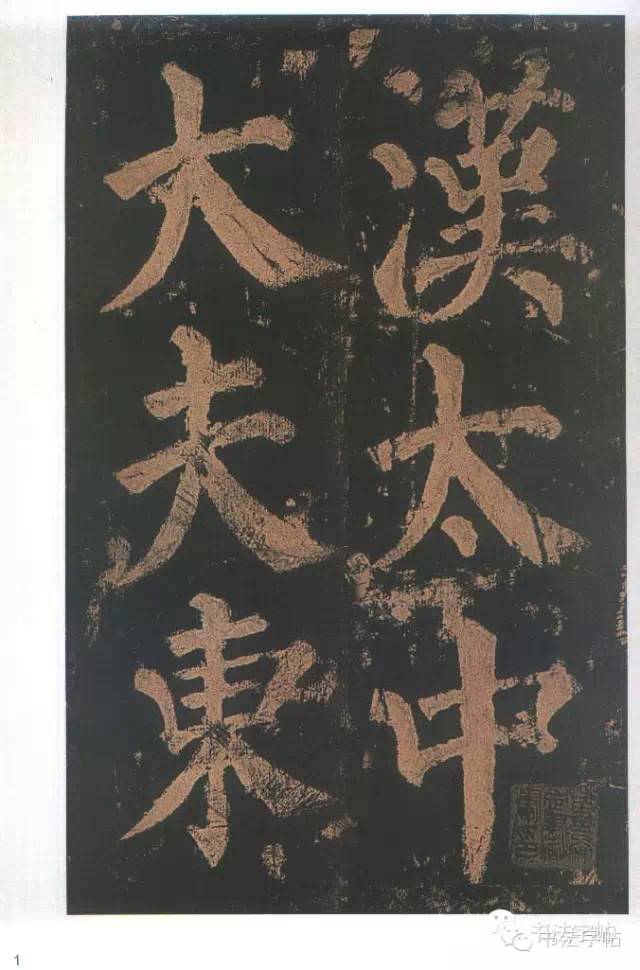 漢太中
大夫東
书法字帖
1